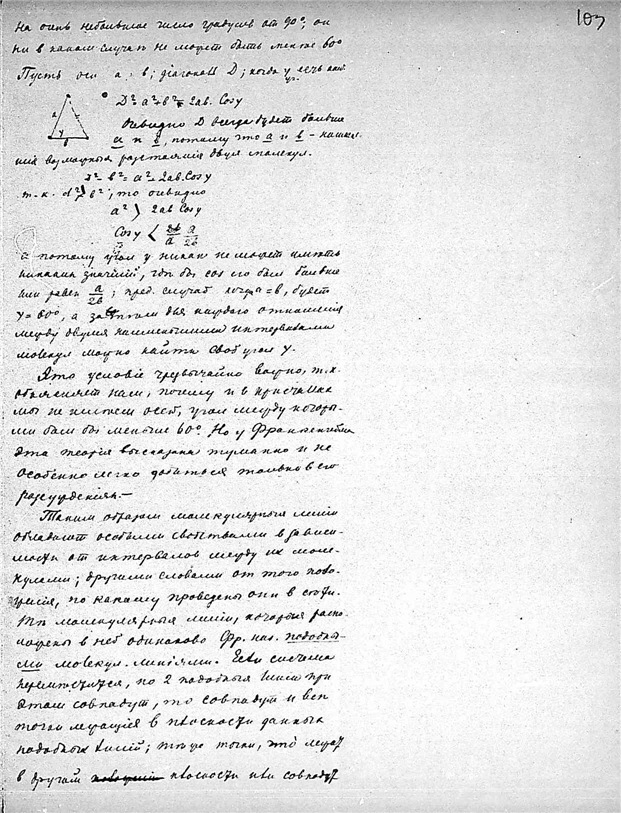 103
на очень небольшое число градусов от 90°; он
ни в каком случаѣ не может быть менѣе 60°
Пусть оси a и b; діагональ D; когда γ есть
D² = a² + b² = 2ab. Cosγ
Очевидно D всегда будет больше
a и b, потому что a и b –
возможныя разстоянія двух молекул.
b² = a² 2ab. Cosγ
т. к. d² > b², то очевидно
a² > 2ab Cosγ
Cosγ < a/2b
а потому угол γ никак не может имѣть
никаких значеній, гдѣ бы cos его был больше
или равен a/2b; пред. случай когда a = b, будет
γ = 60°, а затѣм для каждого отношенія
между двумя наименьшими интервалами
молекул можно найти свой угол γ.
Это условіе чрезвычайно важно, т. к.
объясняет нам, почему и в кристаллах
мы не имѣем осей, угол между которы-
ми был бы меньше 60°. Но у Франкенгейма
эта теорія высказана туманно и не
особенно легко добиться толку в его
разсужденіях. –
Таким образом молекулярныя линіи
обладают особыми свойствами в зависи-
мости от интервалов между их моле-
кулами; другими словами от того
по какому проведены они в
Тѣ молекулярныя линіи, которыя распо-
ложены в ней одинаково Фр. наз. подобны-
ми молекул. линіями. Если система
перемѣстится, но 2 подобныя линіи при
этом совпадут, то совпадут и всѣ
точки лежащія в плоскости данных
подобных линій; точки, что лежат
в другой плоскости или совпадут